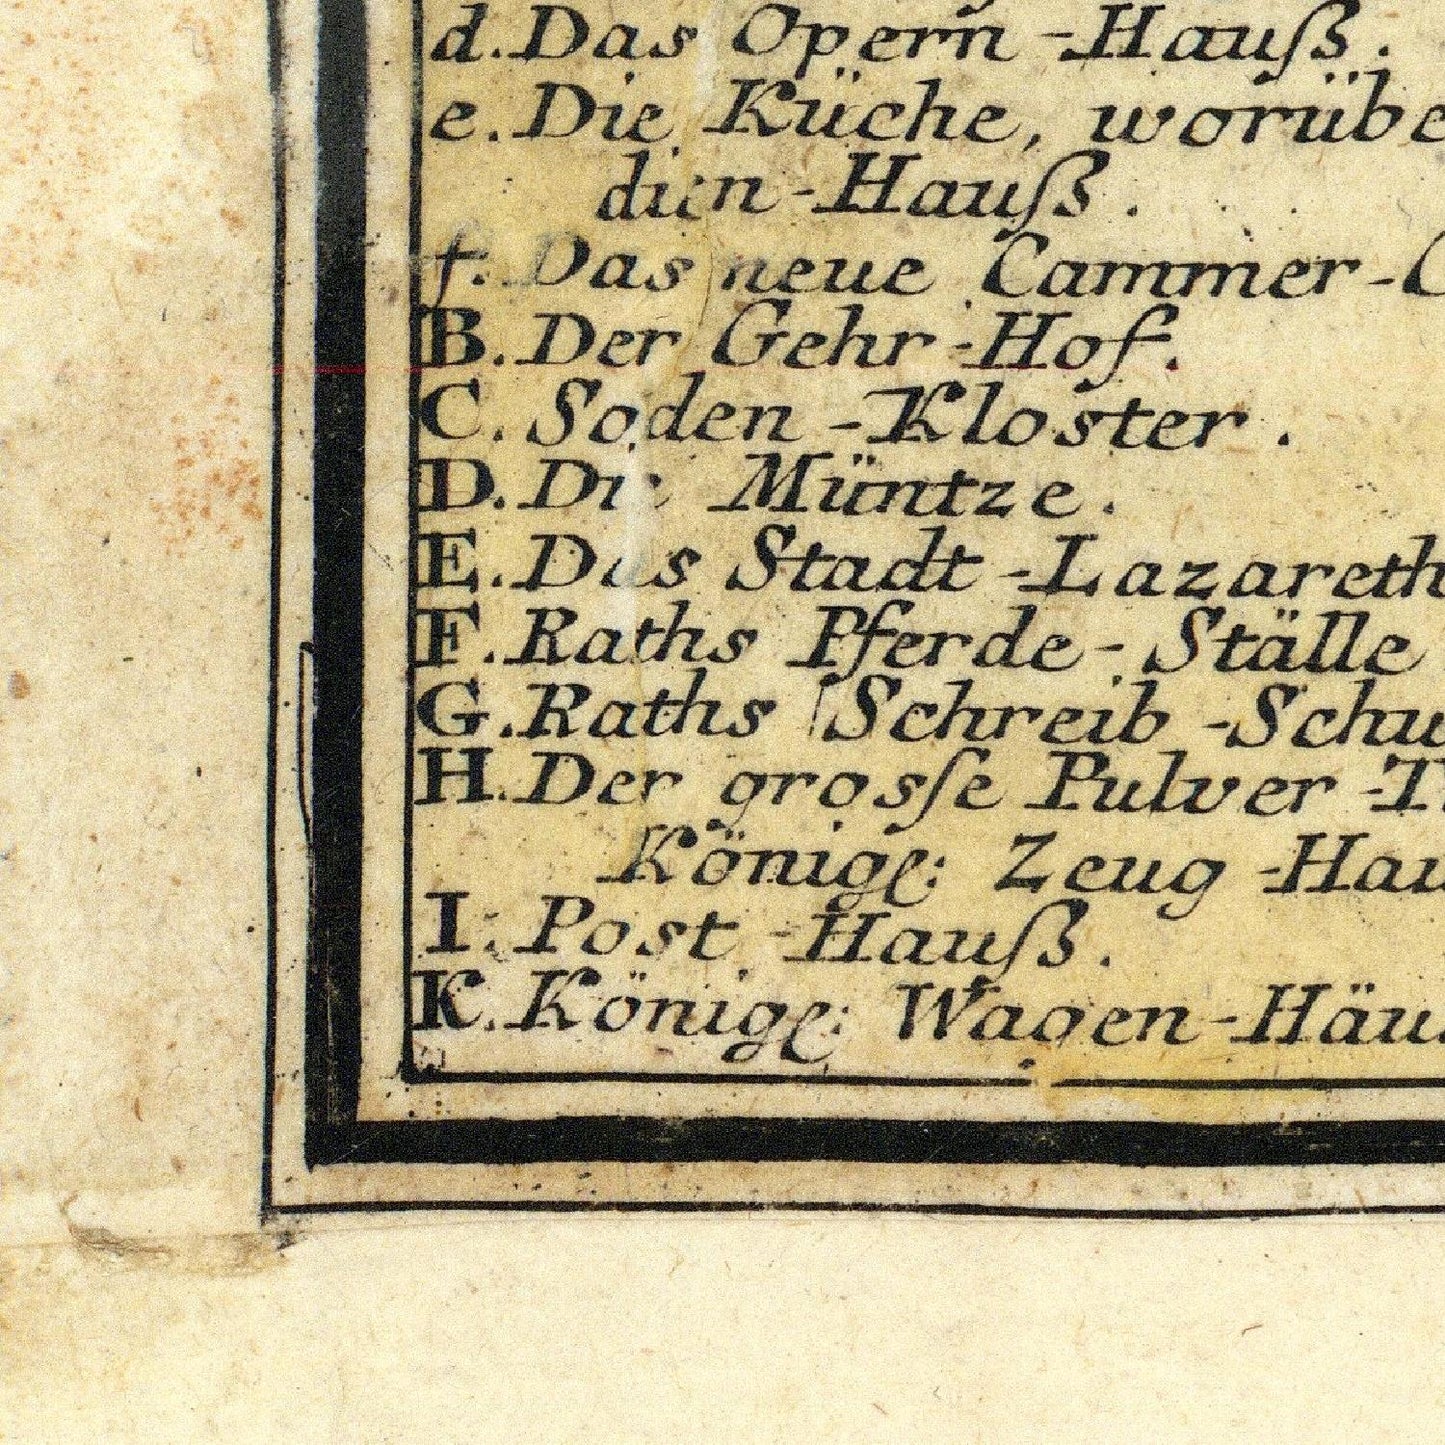 d. Das Opern-Hauß.
e. Die Küche, worübe
dien-Hauß.
f. Das neue Cammer-C
B. Der Gehr-Hof.
C. Soden-Kloster.
D. Die Müntze.
E. Das Stadt-Lazareth
F. Raths Pferde-Ställe
G. Raths Schreib-Schu
H. Der grosse Pulver-T
Königl: Zeug-Hau
I. Post-Hauß.
K. Königl: Wagen-Häus